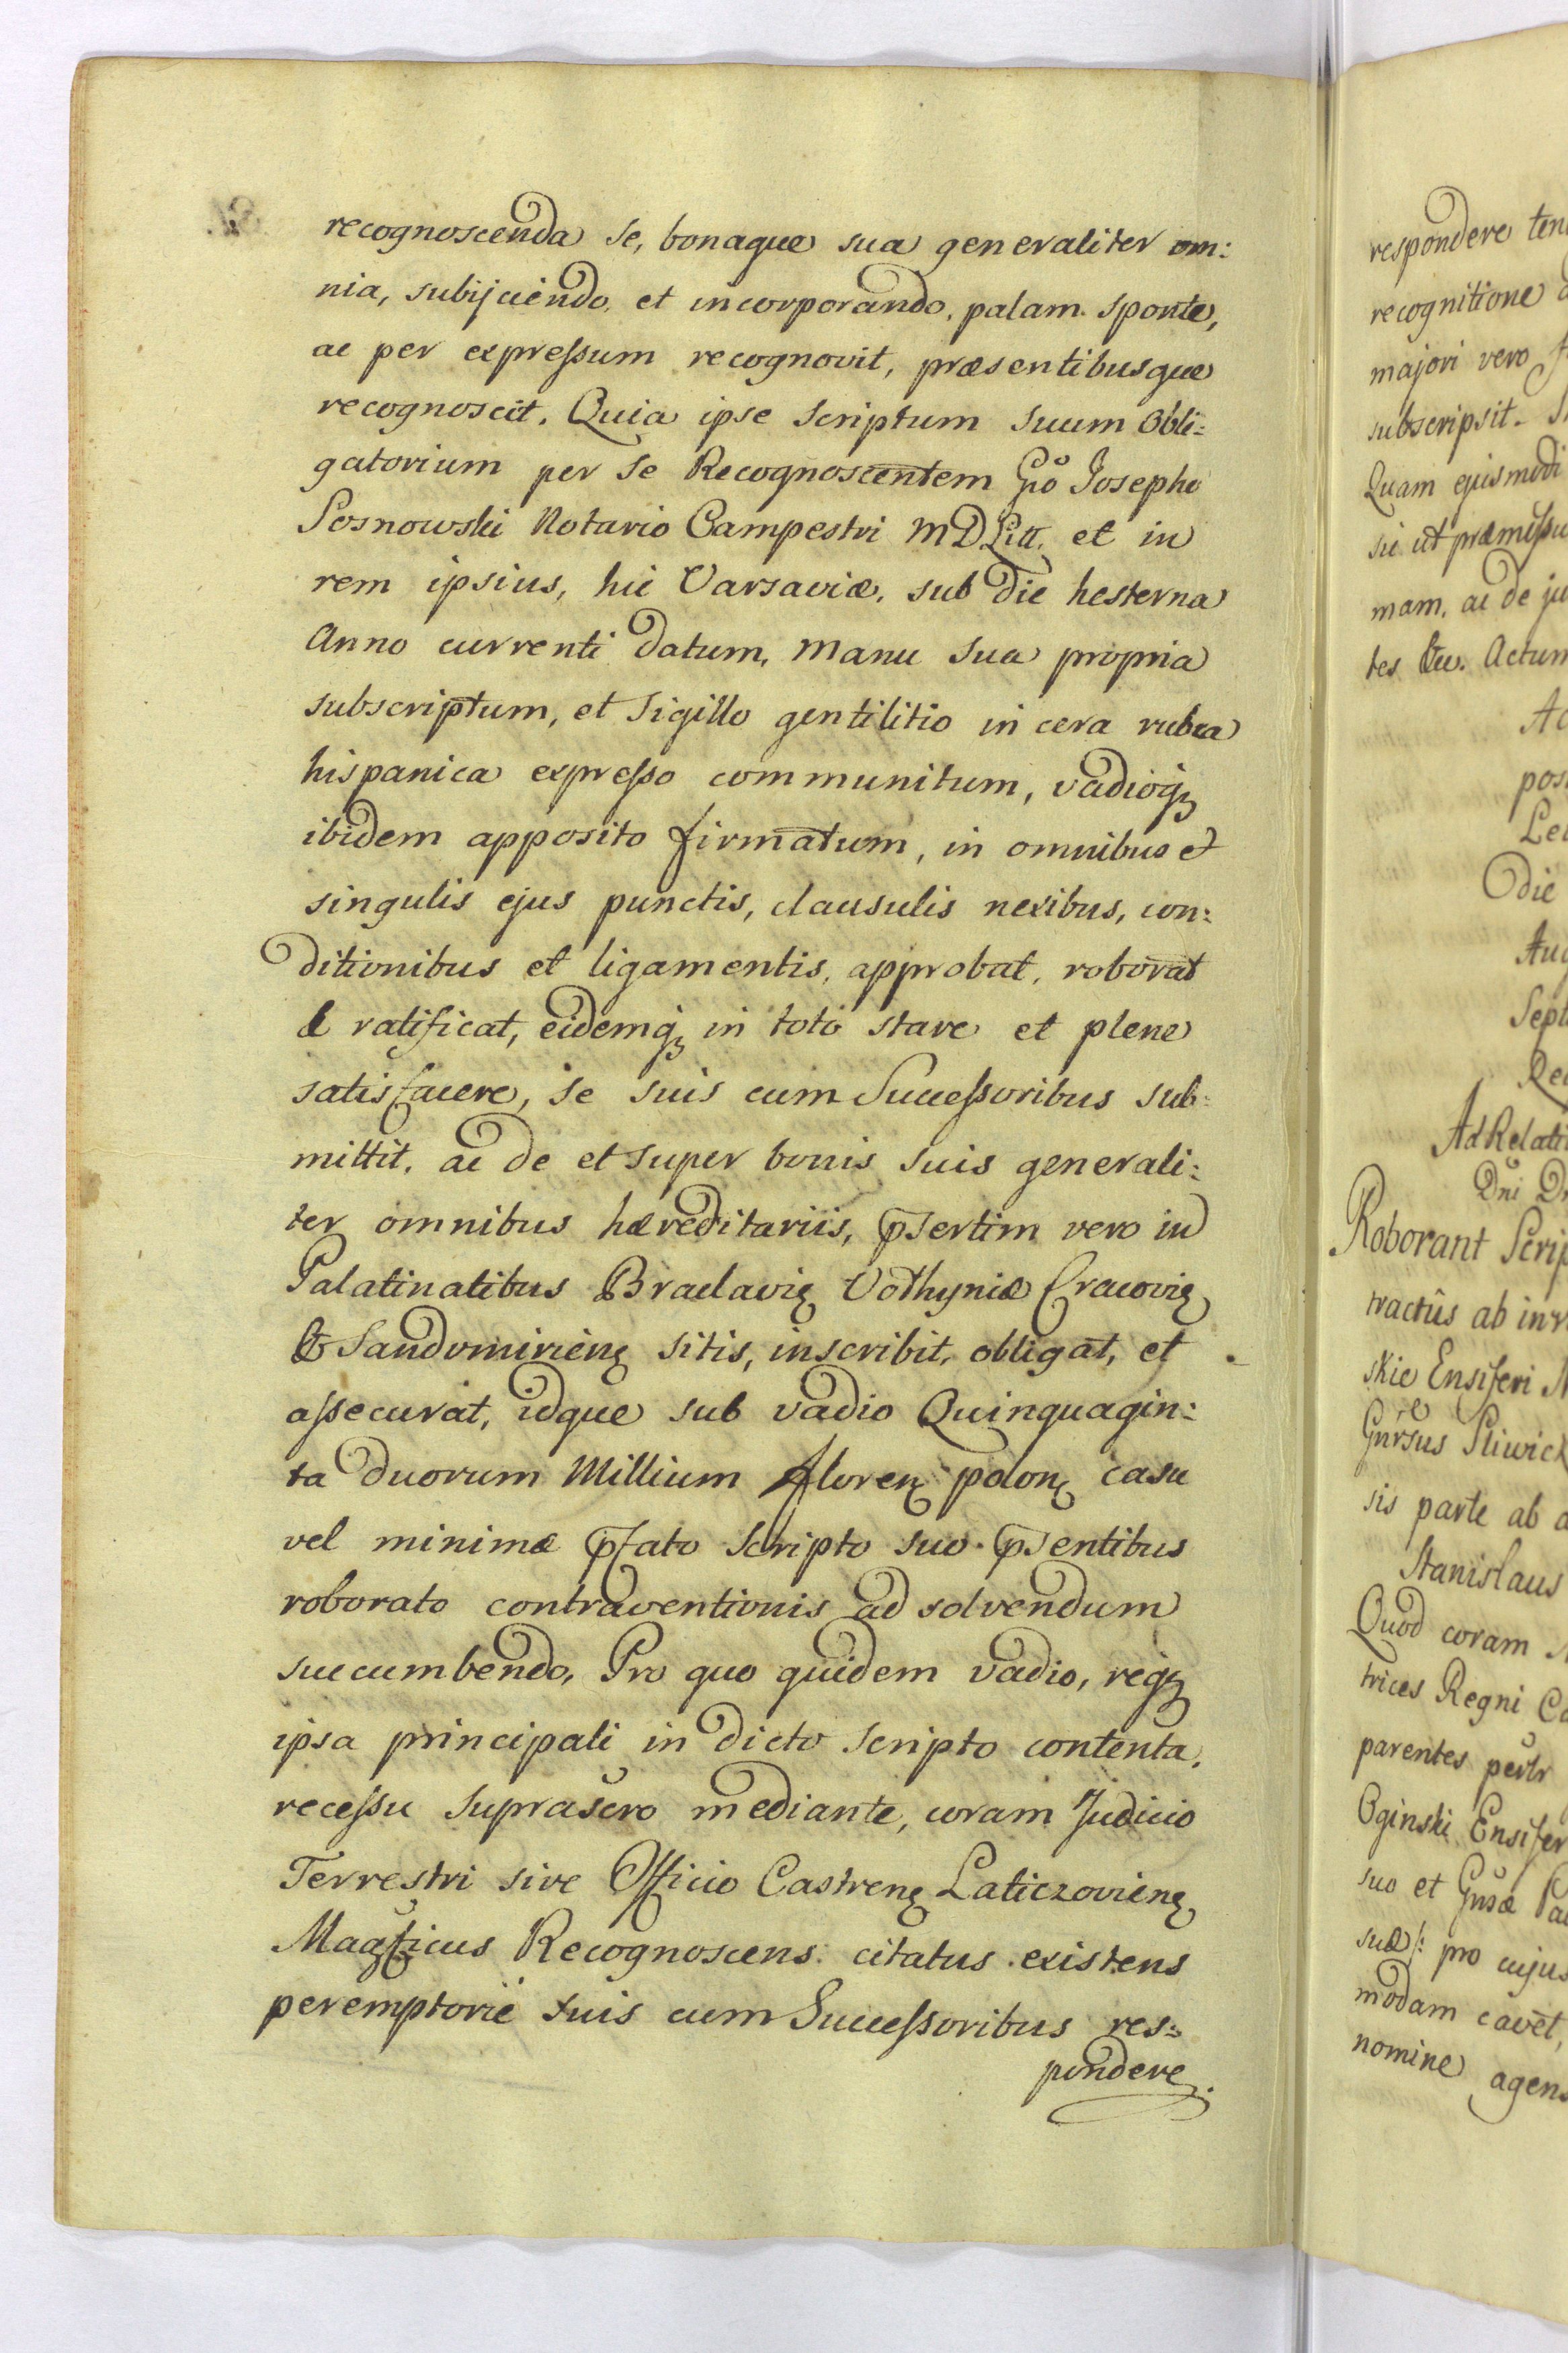 recognoscenda se, bonaque sua generaliter om:
nia, subijciendo, et incorporando, palam sponte,
ac per expreſsum recognovit, præsentibusque
recognoscit. Quia ipse scriptum suum obli:
gatorium per se Recognoscentem Gso Josepho
Sosnowski Notario Campestri MDLitt, et in
rem ipsius, hic Varsaviæ, sub die hesterna
Anno currenti datum, manu sua propria
subscriptum, et sigillo gentilitio in cera rubea
hispanica expreſso communitum, vadioq
ibidem apposito firmatum, in omnibus et
singulis ejus punctis, clausulis nexibus, con:
ditionibus et ligamentis, approbat, roborat
& ratificat, eidemq in toto stare et plene
satisfacere, se suis cum Succeſsoribus sub:
mittit, ac de et super bonis suis generali:
ter omnibus hæreditariis, p̅sertim vero in
Palatinatibus Braclavię Volhyniæ Cracovię
& Sandomirieng sitis, inscribit, obligat, et
aſsecurat, idque sub vadio Quinquagin:
ta duorum Millium floren polon casu
vel minimæ p̅fato scripto suo p̅sentibus
roborato contraventionis ad solvendum
succumbendo, Pro quo quidem vadio, req
ipsa principali in dicto scripto contenta,
receſsu suprascro mediante, coram Judicio
Terrestri sive Officio Castreng Laticzovieng
Magficus Recognoscens citatus existens
peremptorie suis cum Succeſsoribus res:
pondere.
respondere
recognitione
majori vero
subscripsit.
Quam ejusmodi
sic ut
mam, ac de
tes Actum
die
Sept
Ad
Dni
Roborant
tractûs ab
skie Ensiferi
sis parte ab
Stanislaus
Quod coram
trices Regni
parentes
Oginski
suo et
suæ /: pro cujus
modam cavet,
nomine agens